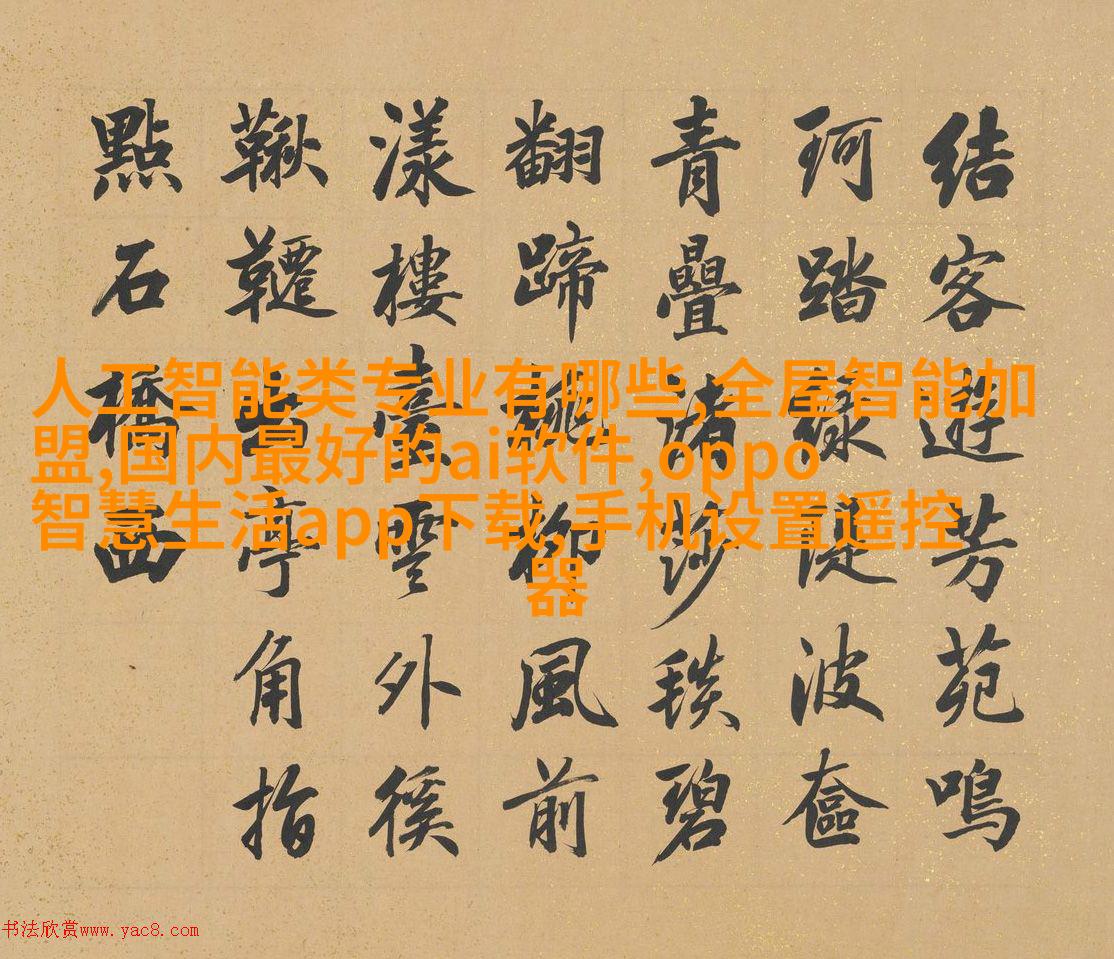 結客遊芳苑鳴
珂踏綠隄波奩
青疊渚莎毯碧
翻蹄柳風前
漾樓臺雲外徯
鞦韆亭角指
點石橋西
人工智能类专业有哪些,全屋智能加
盟,国内最好的ai软件,oppo
智慧生活app下载,手机设置遥控
器
书法欣赏www.yac8.com